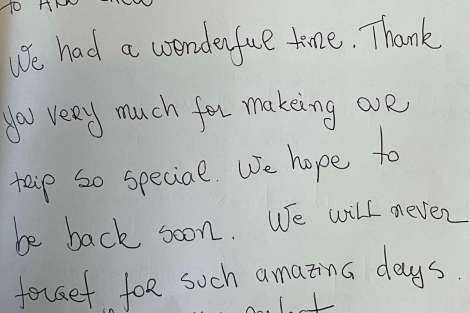 to
We had a wonderful time. Thank
you very much for makeing our
trip so special. We hope to
be back soon. We will never
forget for such amazing days.